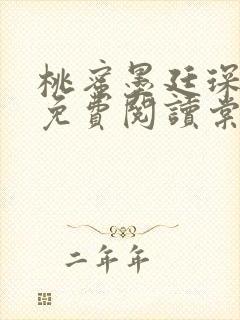 桃蜜墨廷深
免費閱讀棠
二年年